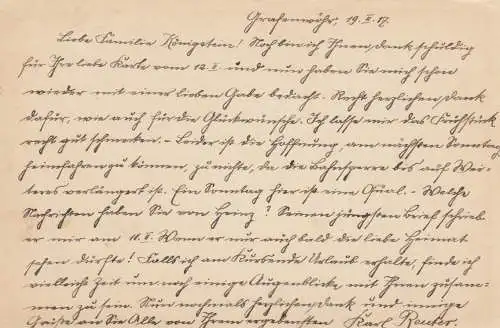 Grafenwöhr, 19.II.17.
Liebe Familie Königstein! Noch bin ich Ihnen dank schuldig
für Ihre liebe Karte vom 12.II. und nun haben Sie mich schon
wieder mit einer lieben Gabe bedacht. Recht herzlichen dank
dafür, wie auch für die Glückwünsche. Ich lasse mir das Frühstück
recht gut schmecken. - Leider ist die Hoffnung, am nächsten Sonntag
heimfahren zu können, zu nichte, da die Bahnsperre bis auf Wei-
teres verlängert ist. Ein Sonntag hier ist eine Qual. - Welche
Nachrichten haben Sie von Heinz? Seinen jüngsten Brief schrieb
er mir am 11.II. Wenn er nur auch bald die liebe Heimat
sehen dürfte! Falls ich am Kursende Urlaub erhalte, finde ich
vielleicht Zeit um noch einige Augenblicke mit Ihnen zusam-
men zu sein. Nun nochmals herzlichen dank und innige
Grüße an Sie Alle von Ihrem ergebensten Karl